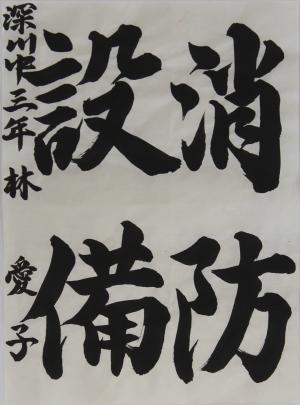 消防
設備
深川中三年 林 愛子